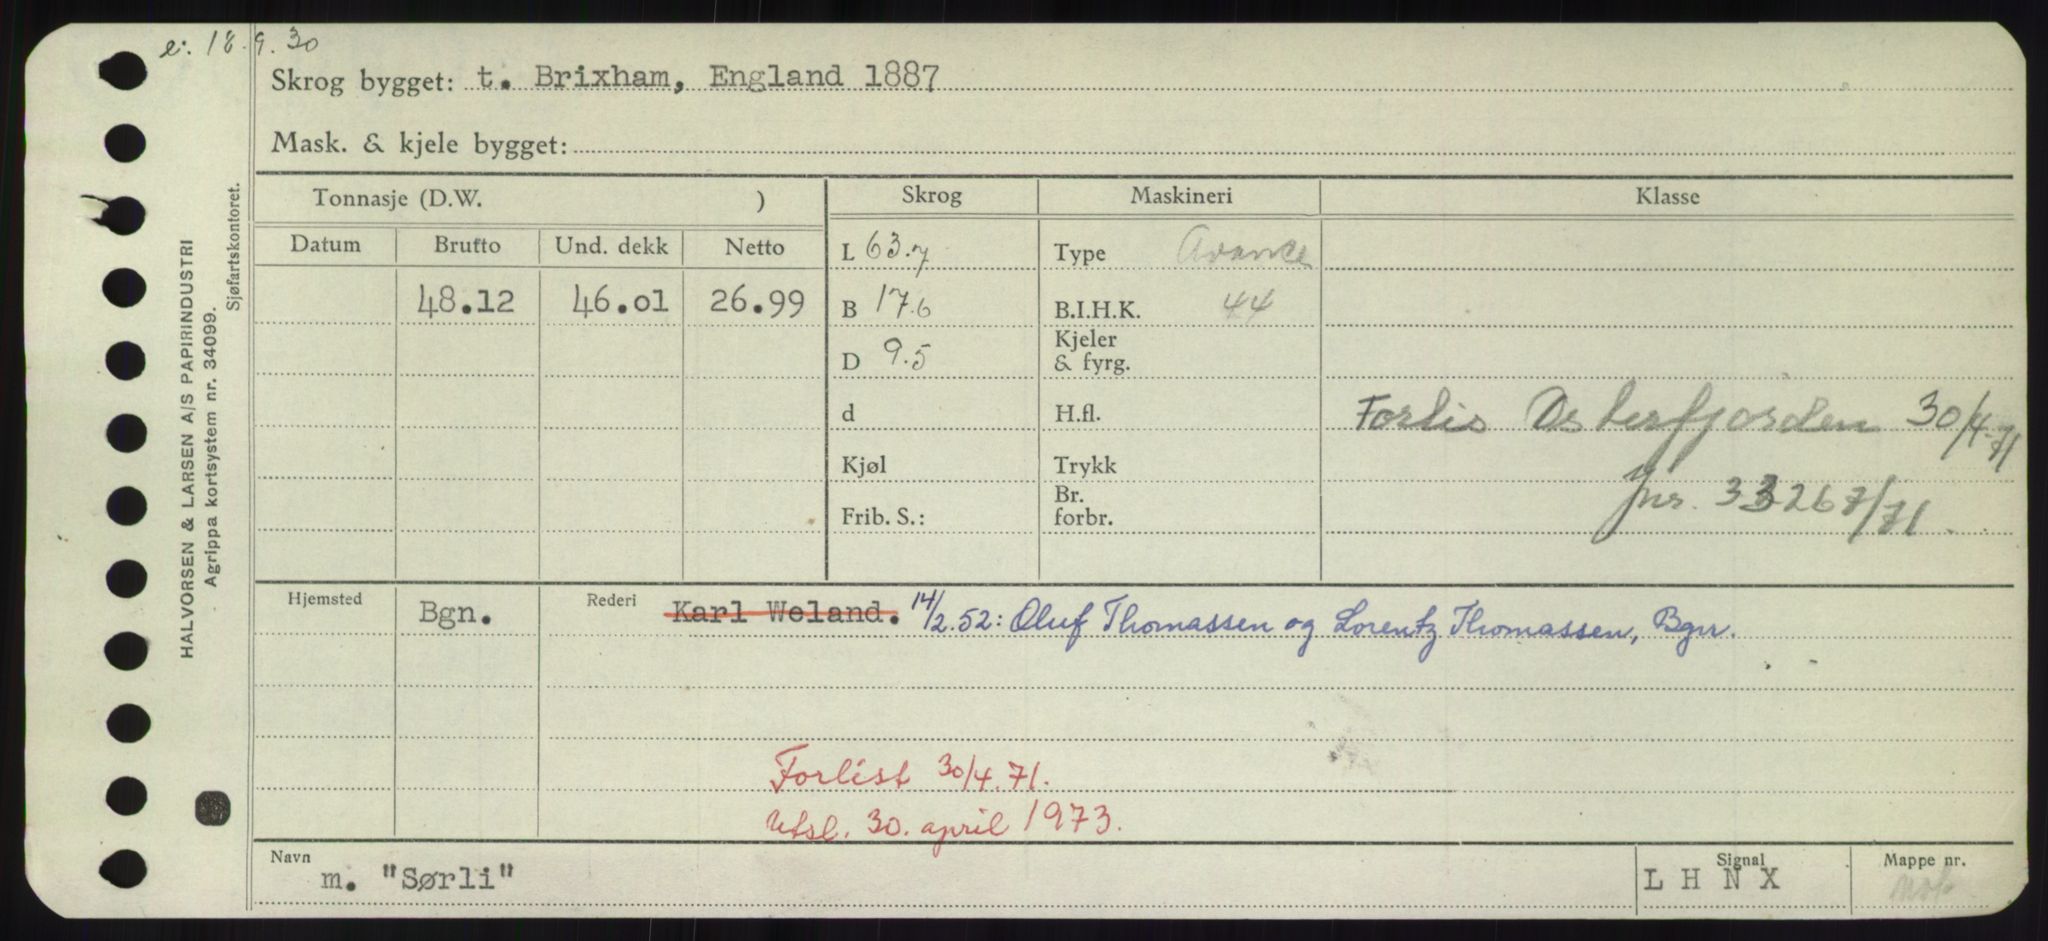 e: 18.9.30
Skrog bygget: t. Brixham, England 1887
Mask. & kjele bygget:
Tonnasje (D.W. ) Skrog Maskineri Klasse
Datum Brutto Und. dekk Netto L 63.7 Type Avance
48.12 46.01 26.99 B 17.6 B.I.H.K. 44
D 9.5 Kjeler & fyrg.
d H.fl. Forlis Osterfjorden 30/4-71
Kjøl Trykk
Frib. S.: Br. forbr. Jnr. 33267/71.
Hjemsted Bgn. Rederi Karl Woland. 14/2.52: Oluf Thomassen og Lorentz Thomassen, Bgn.
Forlist 30/4.71.
Utsl. 30. april 1973.
Navn m. "Sørli" Signal L H N X Mappe nr.
HALVORSEN & LARSEN A/S PAPIRINDUSTRI
Agrippa kortsystem nr. 34099.
Sjøfartskontoret.